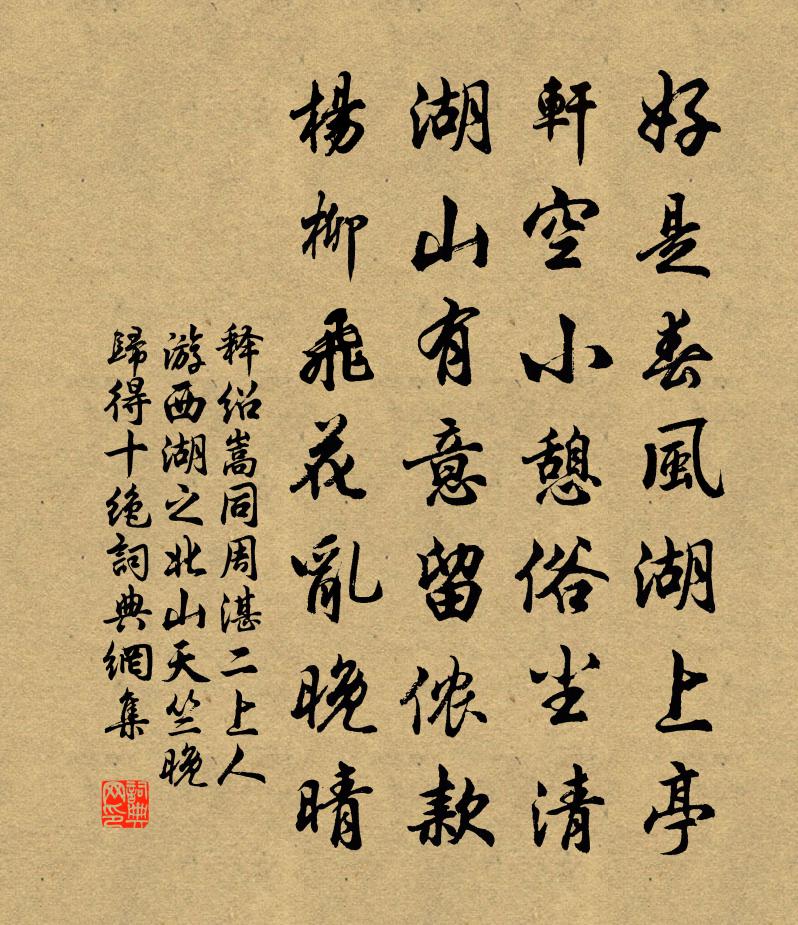 好是春風湖上亭
軒空小憩俗尘清
湖山有意留侬款
楊柳飛花亂晚晴
释绍嵩同周湛二上人
游西湖之北山天竺晚
歸得十绝詞典網集
詞典网印